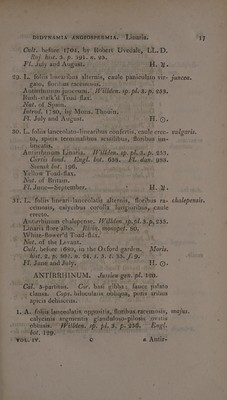 DIDYNAMIA ANGIOSPERMIA. Linaria. 17
Cult. before 1704, by Robert Uvedale, LL. D.
Raj hist. 3. p. 391. n. 25.
Fl. July and August. H. ♃.
29. L. foliis linearibus alternis, caule paniculato virgato, floribus racemosis. juncea.
Antirrhinum junceum. Willden. sp. pl. 3. p. 252.
Rush-stalk'd Toad-flax.
Nat. of Spain.
Introd. 1780, by Mons. Thouin.
Fl. July and August. H. ☉.
30. L. foliis lanceolato-linearibus confertis, caule erecto, spicis terminalibus sessilibus, floribus imbricatis. vulgaris.
Antirrhinum Linaria. Willden. sp. pl. 3. p. 253.
Curtis lond. Engl. bot. 658. Fl. dan. 982.
Svensk bot. 196.
Yellow Toad-flax.
Nat. of Britain.
Fl. June—September. H. ♃.
31. L. foliis lineari-lanceolatis alternis, floribus racemosis, calycibus corolla longioribus, caule erecto. chalepensis.
Antirrhinum chalepense. Willden. sp. pl. 3. p. 255.
Linaria flore albo. Rivin. monopet. 80.
White-flower'd Toad-flax.
Nat. of the Levant.
Cult. before 1680, in the Oxford garden. Moris.
hist. 2. p. 502. n. 24. s. 5. t. 35. f. 9.
Fl. June and July. H. ☉.
ANTIRRHINUM. Jussieu gen. pl. 120.
Cal. 5-partitus. Cor. basi gibba; fauce palato clausa. Caps. bilocularis obliqua, poris tribus apicis dehiscens.
1. A. foliis lanceolatis oppositis, floribus racemosis, calycinis segmentis glanduloso-pilosis ovatis obtusis. Willden. sp. pl. 3. p. 256. Engl. bot. 129. majus.
VOL. IV. C a Antir-